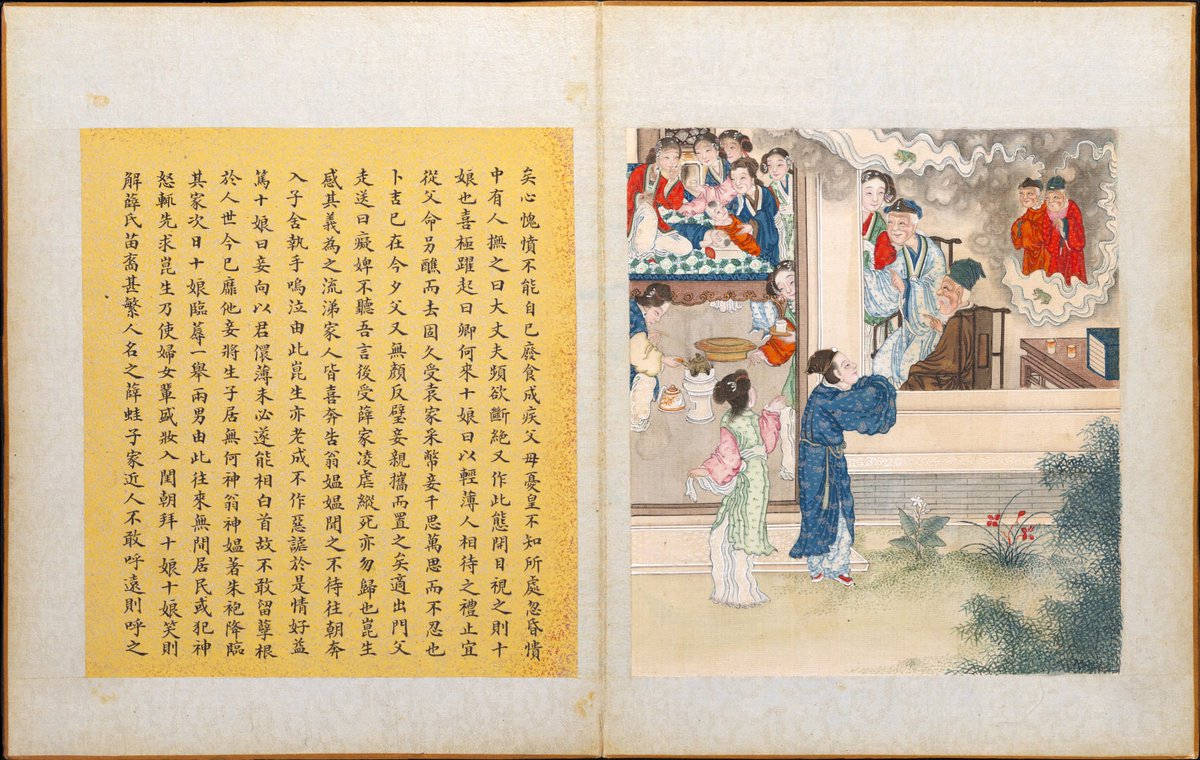 矣心愧憤不能自已廢食成疾父母憂皇不知所處忽昏憒
中有人撫之曰大丈夫頻欲斷絕又作此態開目視之則十
娘也喜極躍起曰卿何來十娘曰以輕薄人相待之禮止宜
從父命另醮而去固久受袁家采幣妾千思萬思而不忍也
卜吉已在今夕父又無顏反璧妾親攜而置之矣適出門父
走送曰癡婢不聽吾言後受薛家凌虐縱死亦勿歸也崑生
感其義為之流涕家人皆喜奔告翁媼媼聞之不待往朝奔
入子舍執手嗚泣由此崑生亦老成不作惡謔於是情好益
篤十娘曰妾向以君儇薄未必遂能相白首故不敢留孽根
於人世今已靡他妾將生子居無何神翁神媼著朱袍降臨
其家次日十娘臨蓐一舉兩男由此往來無間居民或犯神
怒輒先求崑生乃使婦女輩盛妝入閨朝拜十娘十娘笑則
解薛氏苗裔甚繁人名之薛蛙子家近人不敢呼遠則呼之